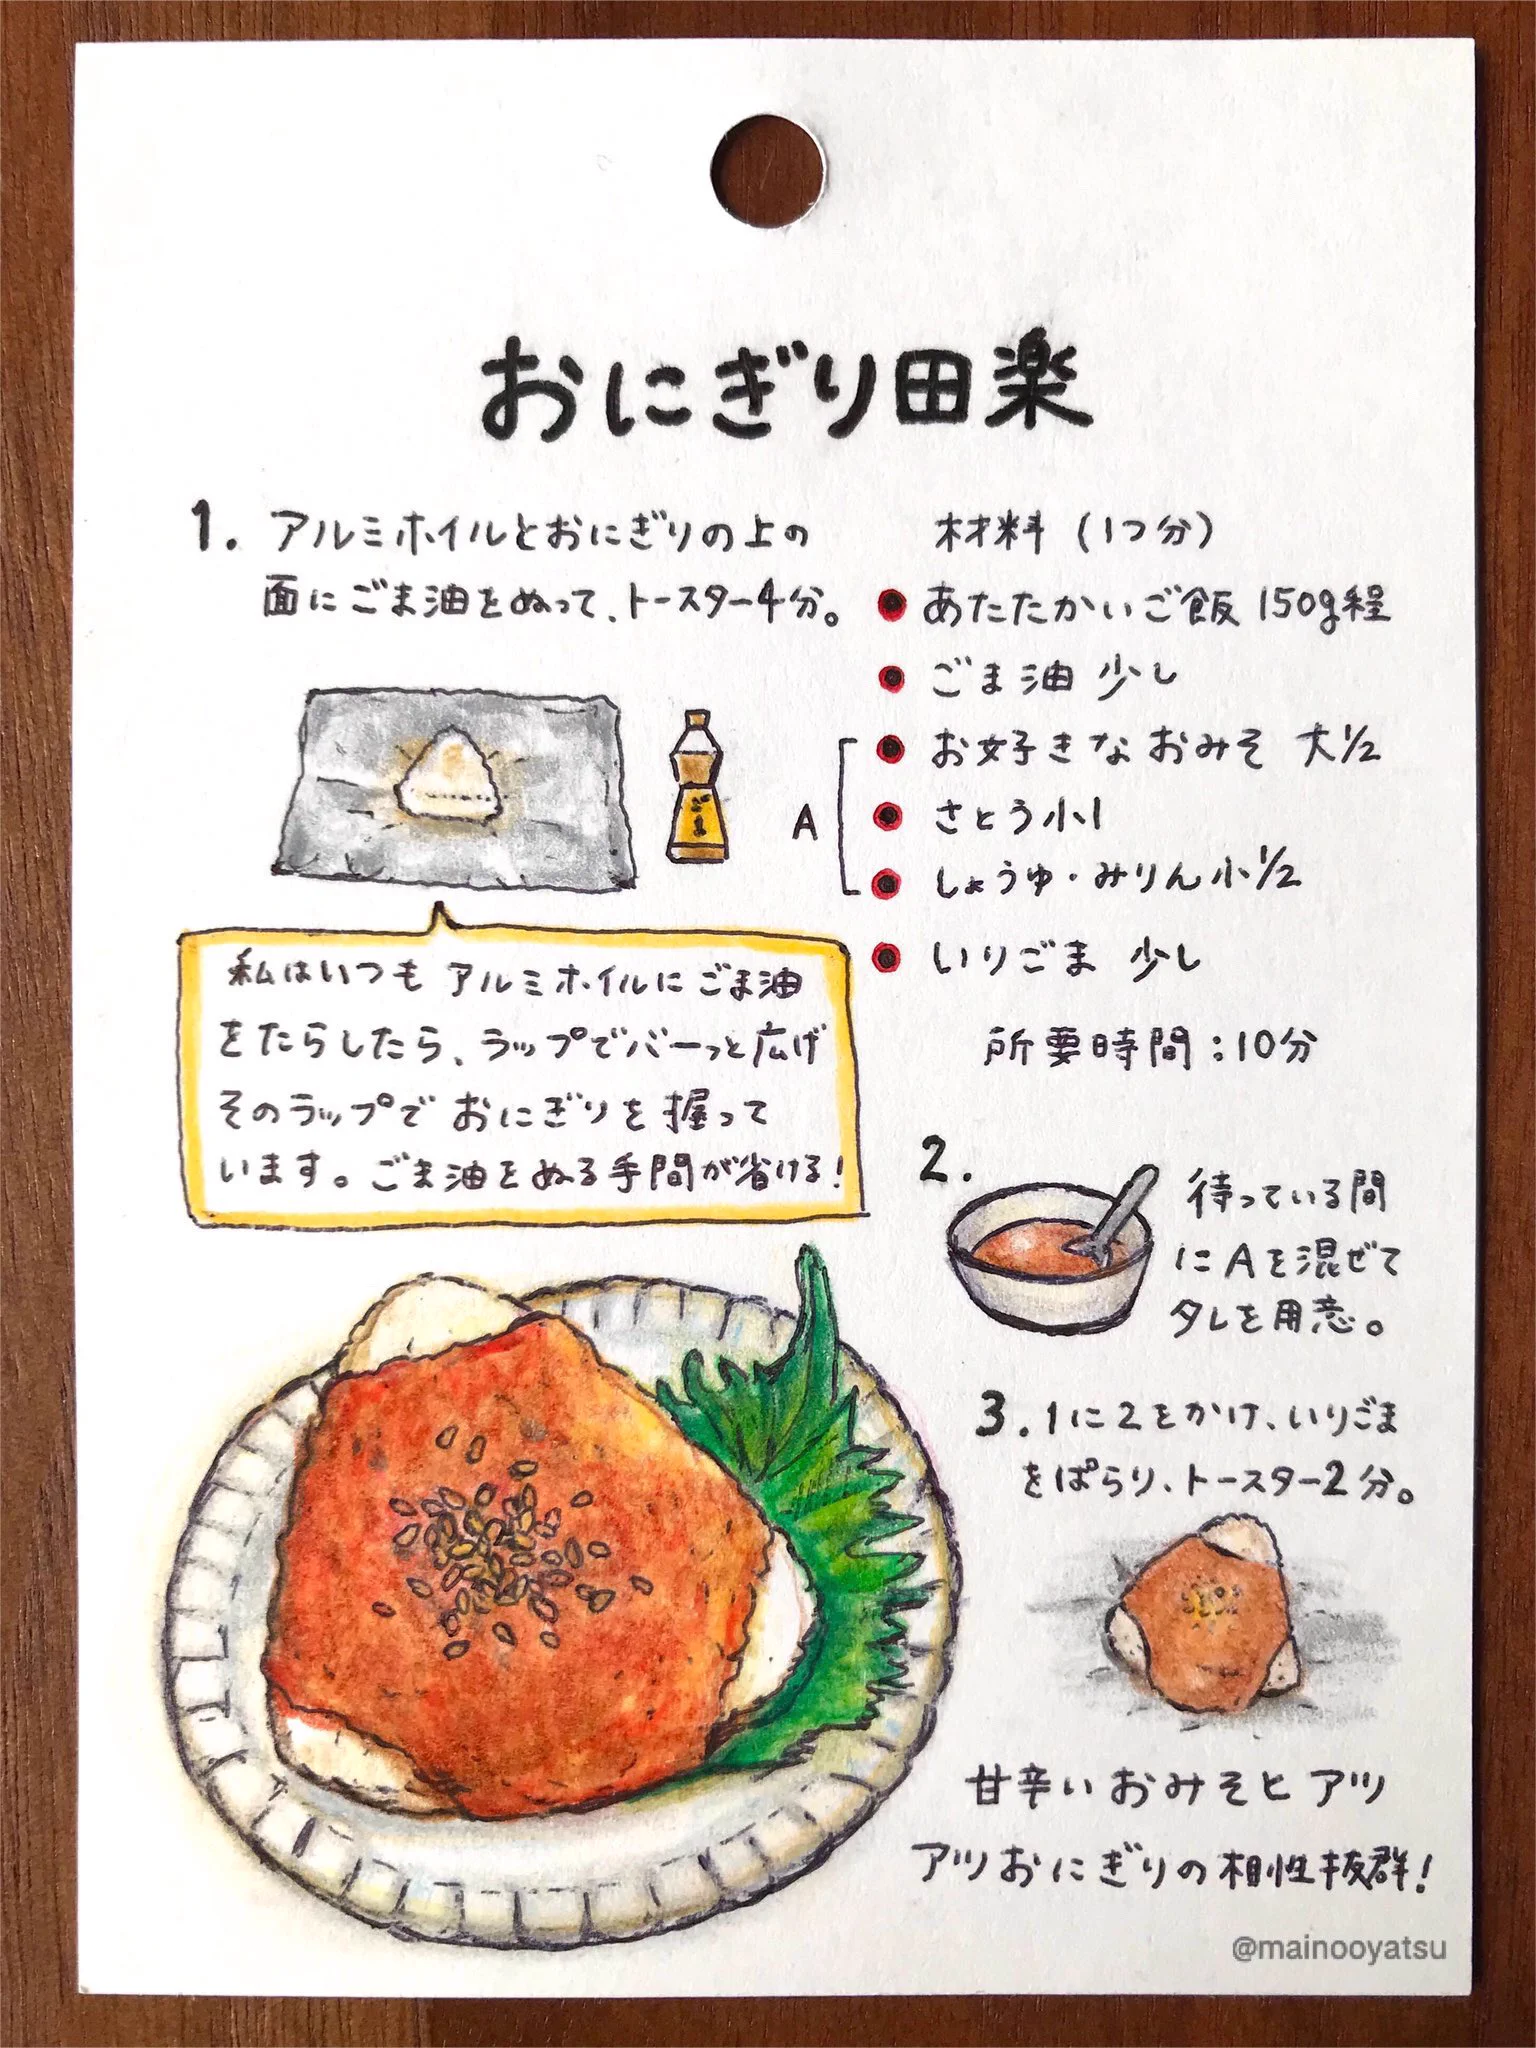 おにぎり田楽
1. アルミホイルとおにぎりの上の
面にごま油をぬって、トースター4分。
材料(1つ分)
あたたかいご飯 150g程
ごま油 少し
A
お好きなおみそ 大1/2
さとう小1
しょうゆ・みりん小1/2
いりごま 少し
所要時間:10分
私はいつもアルミホイルにごま油
をたらしたら、ラップでバーっと広げ
そのラップでおにぎりを握って
います。ごま油をぬる手間が省ける!
2.
待っている間
にAを混ぜて
タレを用意。
3. 1に2をかけ、いりごま
をぱらり、トースター2分。
甘辛いおみそとアツ
アツおにぎりの相性抜群!
@mainooyatsu